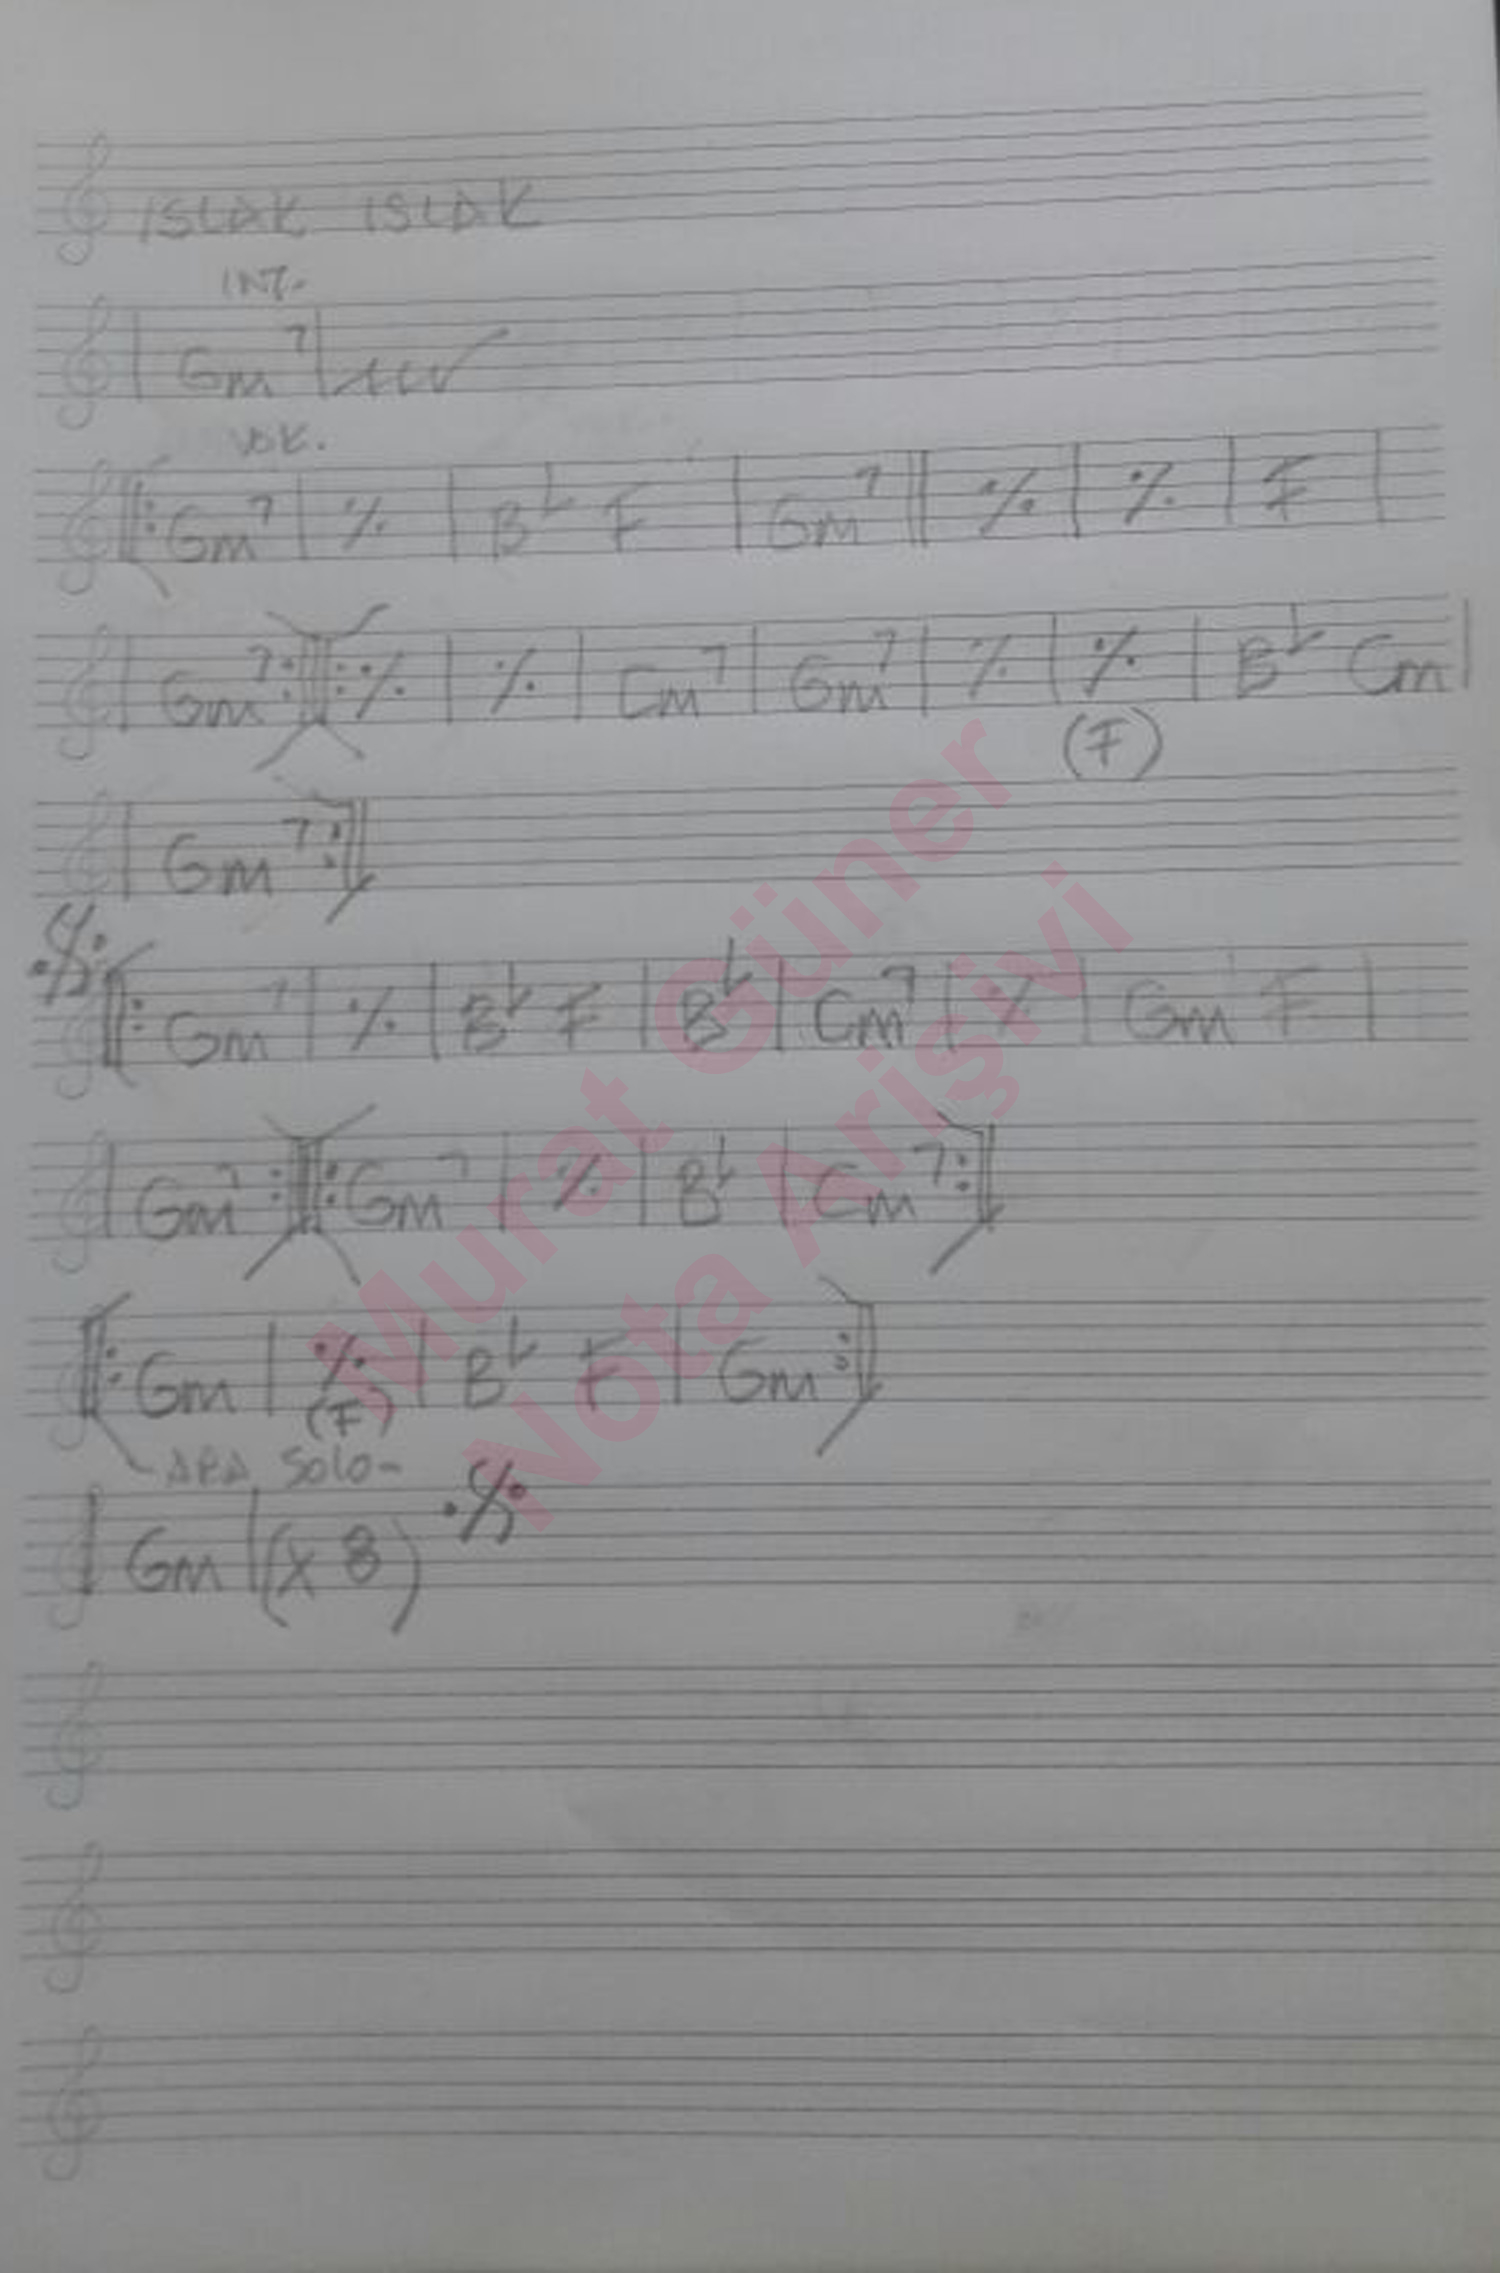 ISLAK ISLAK
INT.
| Gm7 |
VOK.
‖: Gm7 | % | B♭ F | Gm7 ‖ % | % | F |
| Gm7 :‖: % | % | Cm7 | Gm7 | % | % | B♭ Cm |
(F)
| Gm7 :‖
𝄋 ‖: Gm7 | % | B♭ F | B♭ | Cm7 | % | Gm F |
| Gm7 :‖: Gm7 | % | B♭ | Cm7 :‖
‖: Gm | % | B♭ F | Gm :‖
(F)
- ARA SOLO -
| Gm | (x 8) 𝄋
Murat Güner
Nota Arişivi